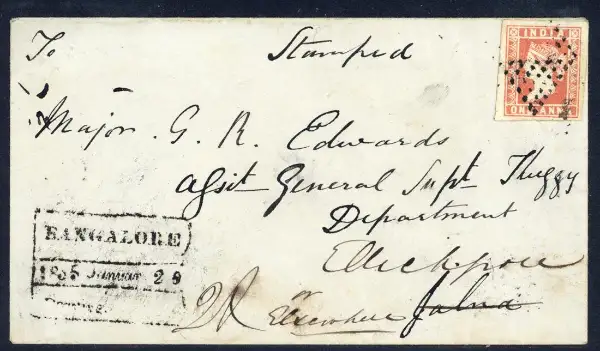 To
Stamped
INDIA
ONE ANNA
Major. G. R. Edwards
Assit General Supt. Thuggy
Department
Ellichpore
or
Elsewhere Jalna
BANGALORE
1855 Januar 29